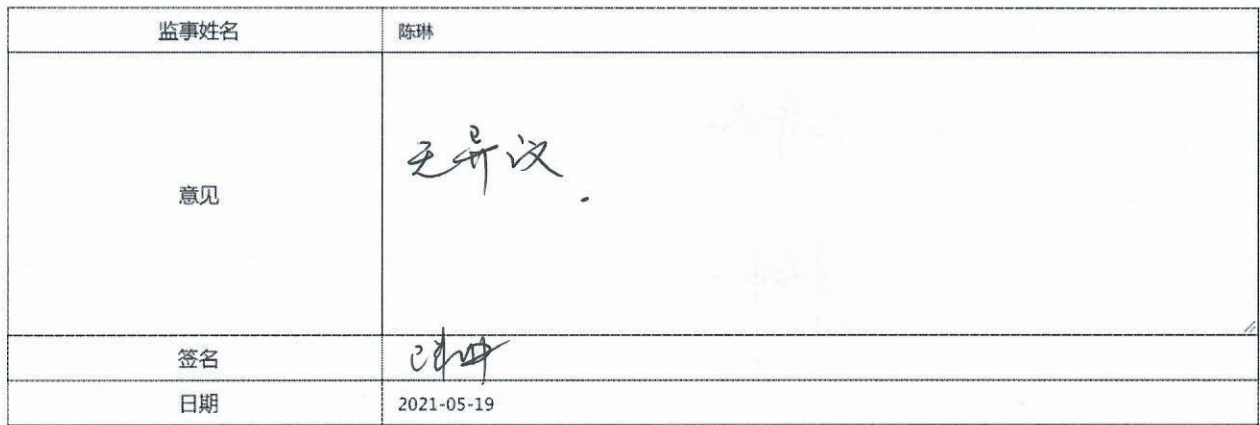 监事姓名 陈琳
意见 无异议.
签名
日期 2021-05-19